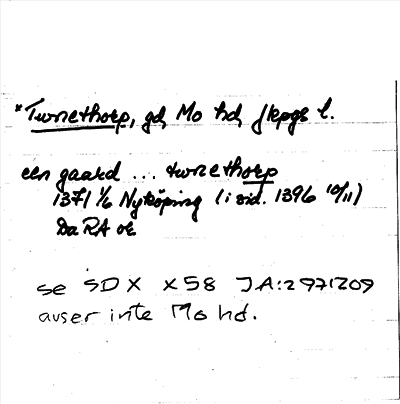 *Twnethorp, gd, Mo hd, Jkpgs l.
een gaard ... twnethorp
1371 1/6 Nyköping (i vid. 1396 10/11)
Da RA or
se SDX X58 JA:2971209
avser inte Mo hd.